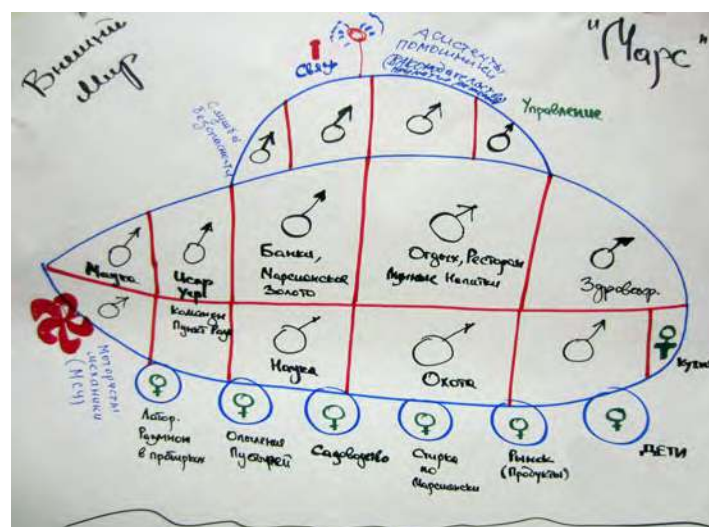 Внешний
Мир
"Марс"
Связь
Асистенты
помошники
Управление
Служба
безопасности
Наука
Банки,
Марсианское
Золото
Отдых, Ресторан
Лунные Напитки
Здравоохр.
Пункт
Наука
Охота
Кухня
Мотористы
механики
(МСЧ)
в пробирках
Опыление
Пузырей
Садоводство
Стирка
по
Марсиански
Рынок
(Продукты)
ДЕТИ